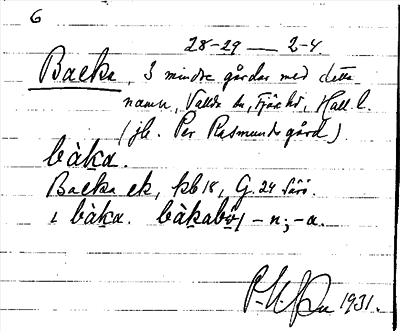 6
28-29 — 2-4.
Backa, 3 mindre gårdar med detta
namn, Vallda sn, Fjäre hd, Hall. l.
(jfr. Per Rasmunds gård).
bàka.
Backa ek, kb 18, G. 24 Särö.
i bàka. bàkabö, -n; -a.
1931.